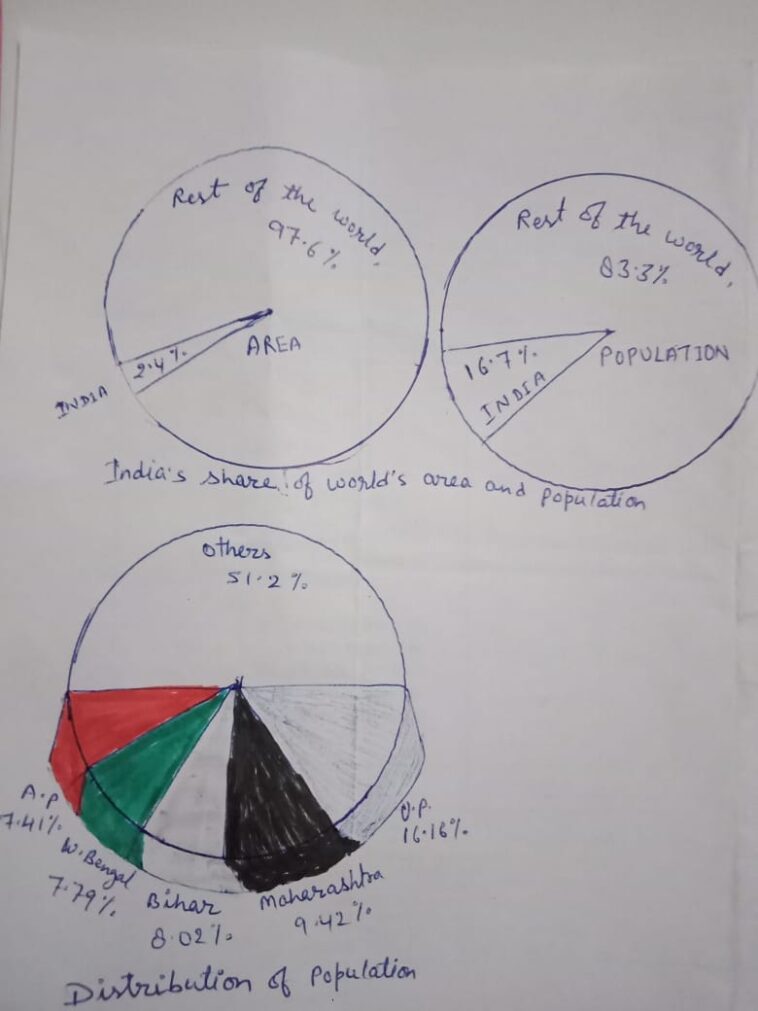 Rest of the world,
97.6%
2.4%
INDIA
AREA
Rest of the world,
83.3%
16.7%
INDIA
POPULATION
India's share of world's area and population
Others
51.2%
A.P
7.41%
W.Bengal
7.79%
Bihar
8.02%
Maharashtra
9.42%
U.P.
16.16%
Distribution of Population